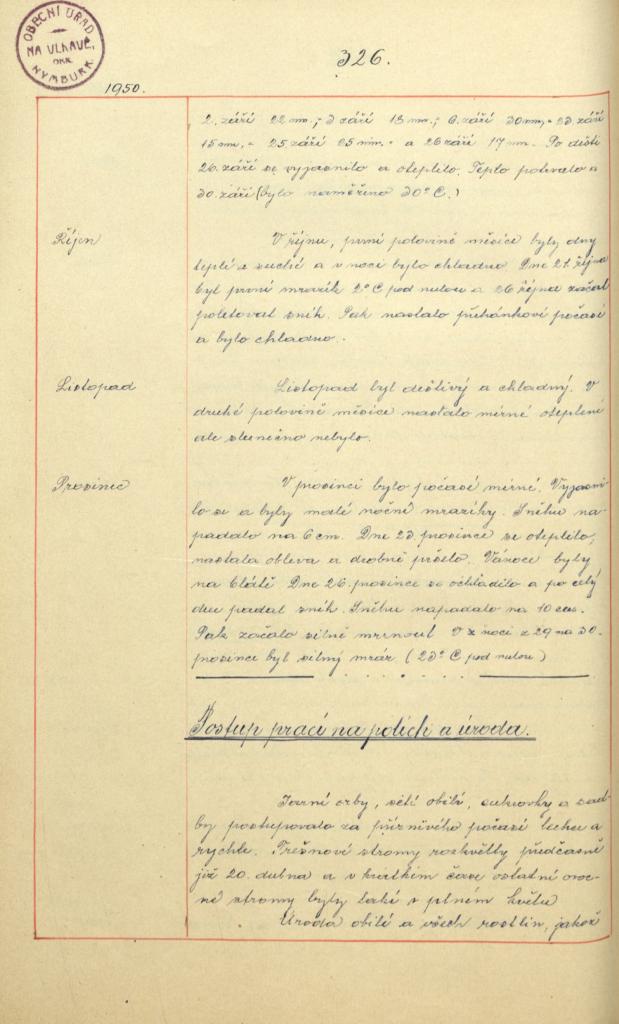 OBECNÍ ÚŘAD
NA VLKAVĚ,
OKR.
NYMBURK.
326.
1950.
2. září 22 mm. ; 3 září 13 mm. ; 6. září 30 mm, - 23 září
15 mm, - 25 září 25 mm. - a 26 září 17 mm. Po dešti
26. září se vyjasnilo a oteplilo. Teplo potrvalo a
30. září (bylo naměřeno 30° C.)
Říjen
V říjnu, první polovině měsíce byly dny
teplé a suché a v noci bylo chladno. Dne 21. října
byl první mrazík 2° C pod nulou a 26 října začal
poletovat sníh. Pak nastalo přehánkové počasí
a bylo chladno.
Listopad
Listopad byl deštivý a chladný. V
druhé polovině měsíce nastalo mírné oteplení
ale slunečno nebylo.
Prosinec
V prosinci bylo počasí mírné. Vyjasni
lo se a byly malé noční mrazíky. Sněhu na-
padalo na 6 cm. Dne 23. prosince se oteplilo,
nastala obleva a drobně pršelo. Vánoce byly
na blátě Dne 26. prosince se ochladilo a po celý
den padal sníh. Sněhu napadalo na 10 cm.
Pak začalo silně mrznout V z noci z 29 na 30.
prosince byl silný mráz ( 23° C pod nulou )
Postup prací na polích a úroda.
Jarní orby, setí obilí, cukrovky a sad-
by postupovalo za příznivého počasí lehce a
rychle. Třešňové stromy rozkvětly předčasně
již 20. dubna a v krátkém čase ostatní ovoc-
né stromy byly také v plném květu
Úroda obilí a všech rostlin, jakož